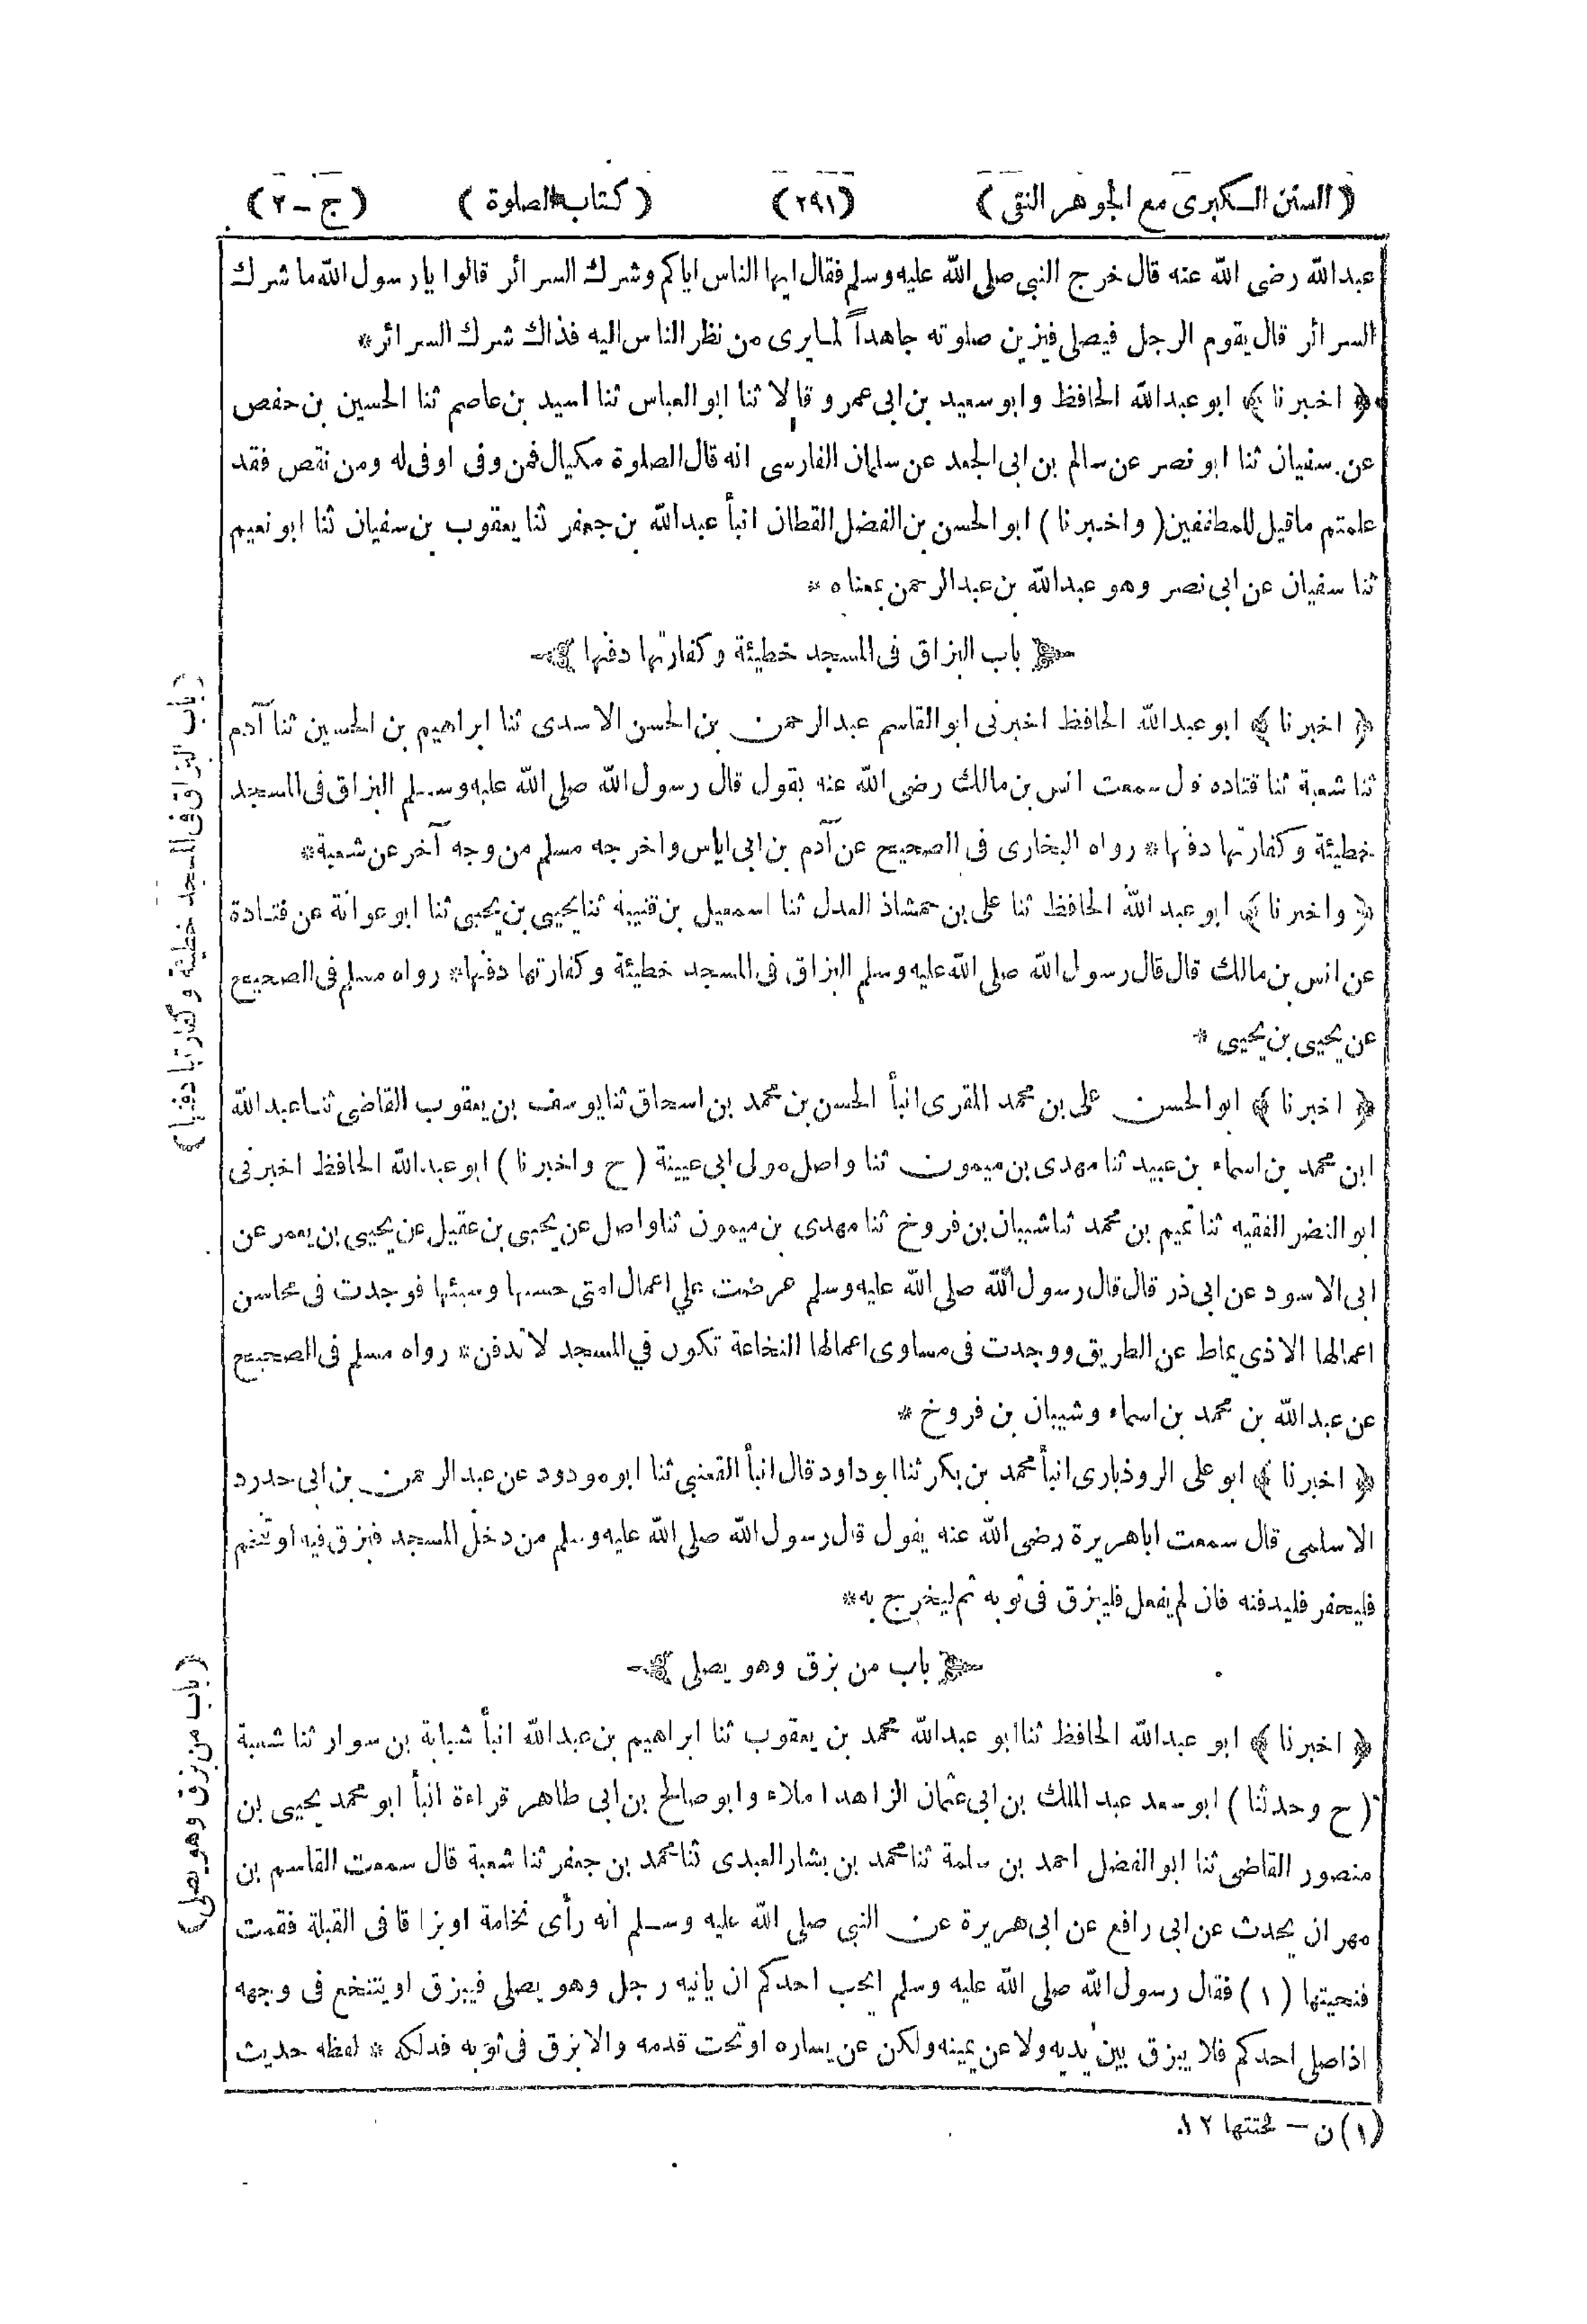 (السنن الكبرى مع الجوهر النقى) (٢٩١) (كتاب الصلوة) (ج - ٢)
عبد الله رضى الله عنه قال خرج النبى صلى الله عليه وسلم فقال ايها الناس اياكم وشرك السرائر قالوا يارسول الله ما شرك
السرائر قال يقوم الرجل فيصلى فيزين صلوته جاهداً لما يرى من نظر الناس اليه فذاك شرك السرائر *
﴿ اخبرنا ﴾ ابو عبد الله الحافظ وابو سعيد بن ابى عمرو قالا ثنا ابو العباس ثنا اسيد بن عاصم ثنا الحسين بن حفص
عن سفيان ثنا ابو نصر عن سالم بن ابى الجعد عن سلمان الفارسى انه قال الصلوة مكيال فمن وفى اوفى له ومن نقص فقد
علمتم ما قيل للمطففين (واخبرنا) ابو الحسن بن الفضل القطان انبأ عبد الله بن جعفر ثنا يعقوب بن سفيان ثنا ابو نعيم
ثنا سفيان عن ابى نصر وهو عبد الله بن عبد الرحمن بمعناه *
باب البزاق فى المسجد خطيئة وكفارتها دفنها
﴿ اخبرنا ﴾ ابو عبد الله الحافظ اخبرنى ابو القاسم عبد الرحمن بن الحسن الاسدى ثنا ابراهيم بن الحسين ثنا آدم
ثنا شعبة ثنا قتاده قال سمعت انس بن مالك رضى الله عنه يقول قال رسول الله صلى الله عليه وسلم البزاق فى المسجد
خطيئة وكفارتها دفنها * رواه البخارى فى الصحيح عن آدم بن ابى اياس واخرجه مسلم من وجه آخر عن شعبة *
﴿ واخبرنا ﴾ ابو عبد الله الحافظ ثنا على بن حمشاذ العدل ثنا اسمعيل بن قتيبة ثنا يحيى بن يحيى ثنا ابو عوانة عن قتادة
عن انس بن مالك قال قال رسول الله صلى الله عليه وسلم البزاق فى المسجد خطيئة وكفارتها دفنها * رواه مسلم فى الصحيح
عن يحيى بن يحيى *
﴿ اخبرنا ﴾ ابو الحسن على بن محمد المقرى انبأ الحسن بن محمد بن اسحاق ثنا يوسف بن يعقوب القاضى ثنا عبد الله
ابن محمد بن اسماء بن عبيد ثنا مهدى بن ميمون ثنا واصل مولى ابى عيينة (ح واخبرنا) ابو عبد الله الحافظ اخبرنى
ابو النضر الفقيه ثنا تميم بن محمد ثنا شيبان بن فروخ ثنا مهدى بن ميمون ثنا واصل عن يحيى بن عقيل عن يحيى بن يعمر عن
ابى الاسود عن ابى ذر قال قال رسول الله صلى الله عليه وسلم عرضت علي اعمال امتى حسنها وسيئها فوجدت فى محاسن
اعمالها الاذى يماط عن الطريق ووجدت فى مساوى اعمالها النخاعة تكون في المسجد لا تدفن * رواه مسلم فى الصحيح
عن عبد الله بن محمد بن اسماء وشيبان بن فروخ *
﴿ اخبرنا ﴾ ابو على الروذبارى انبأ محمد بن بكر ثنا ابو داود قال انبأ القعنبي ثنا ابو مودود عن عبد الرحمن بن ابى حدرد
الاسلمى قال سمعت اباهريرة رضى الله عنه يقول قال رسول الله صلى الله عليه وسلم من دخل المسجد فبزق فيه او تنخم
فليحفر فليدفنه فان لم يفعل فليبزق فى ثوبه ثم ليخرج به *
باب من بزق وهو يصلى
﴿ اخبرنا ﴾ ابو عبد الله الحافظ ثنا ابو عبد الله محمد بن يعقوب ثنا ابراهيم بن عبد الله انبأ شبابة بن سوار ثنا شعبة
(ح وحدثنا) ابو سعد عبد الملك بن ابى عثمان الزاهد املاء وابو صالح بن ابى طاهر قراءة انبأ ابو محمد يحيى بن
منصور القاضى ثنا ابو الفضل احمد بن سلمة ثنا محمد بن بشار العبدى ثنا محمد بن جعفر ثنا شعبة قال سمعت القاسم بن
مهران يحدث عن ابى رافع عن ابى هريرة عن النبى صلى الله عليه وسلم أنه رأى نخامة او بزاقا فى القبلة فقمت
فنحيتها (١) فقال رسول الله صلى الله عليه وسلم ايحب احدكم ان يأتيه رجل وهو يصلى فيبزق او يتنخع فى وجهه
اذا صلى احدكم فلا يبزق بين يديه ولا عن يمينه ولكن عن يساره او تحت قدمه والا بزق فى ثوبه فدلكه * لفظه حديث
(١) ن - فحتتها ١٢.
(باب البزاق فى المسجد خطيئة وكفارتها دفنها)
(باب من بزق وهو يصلى)